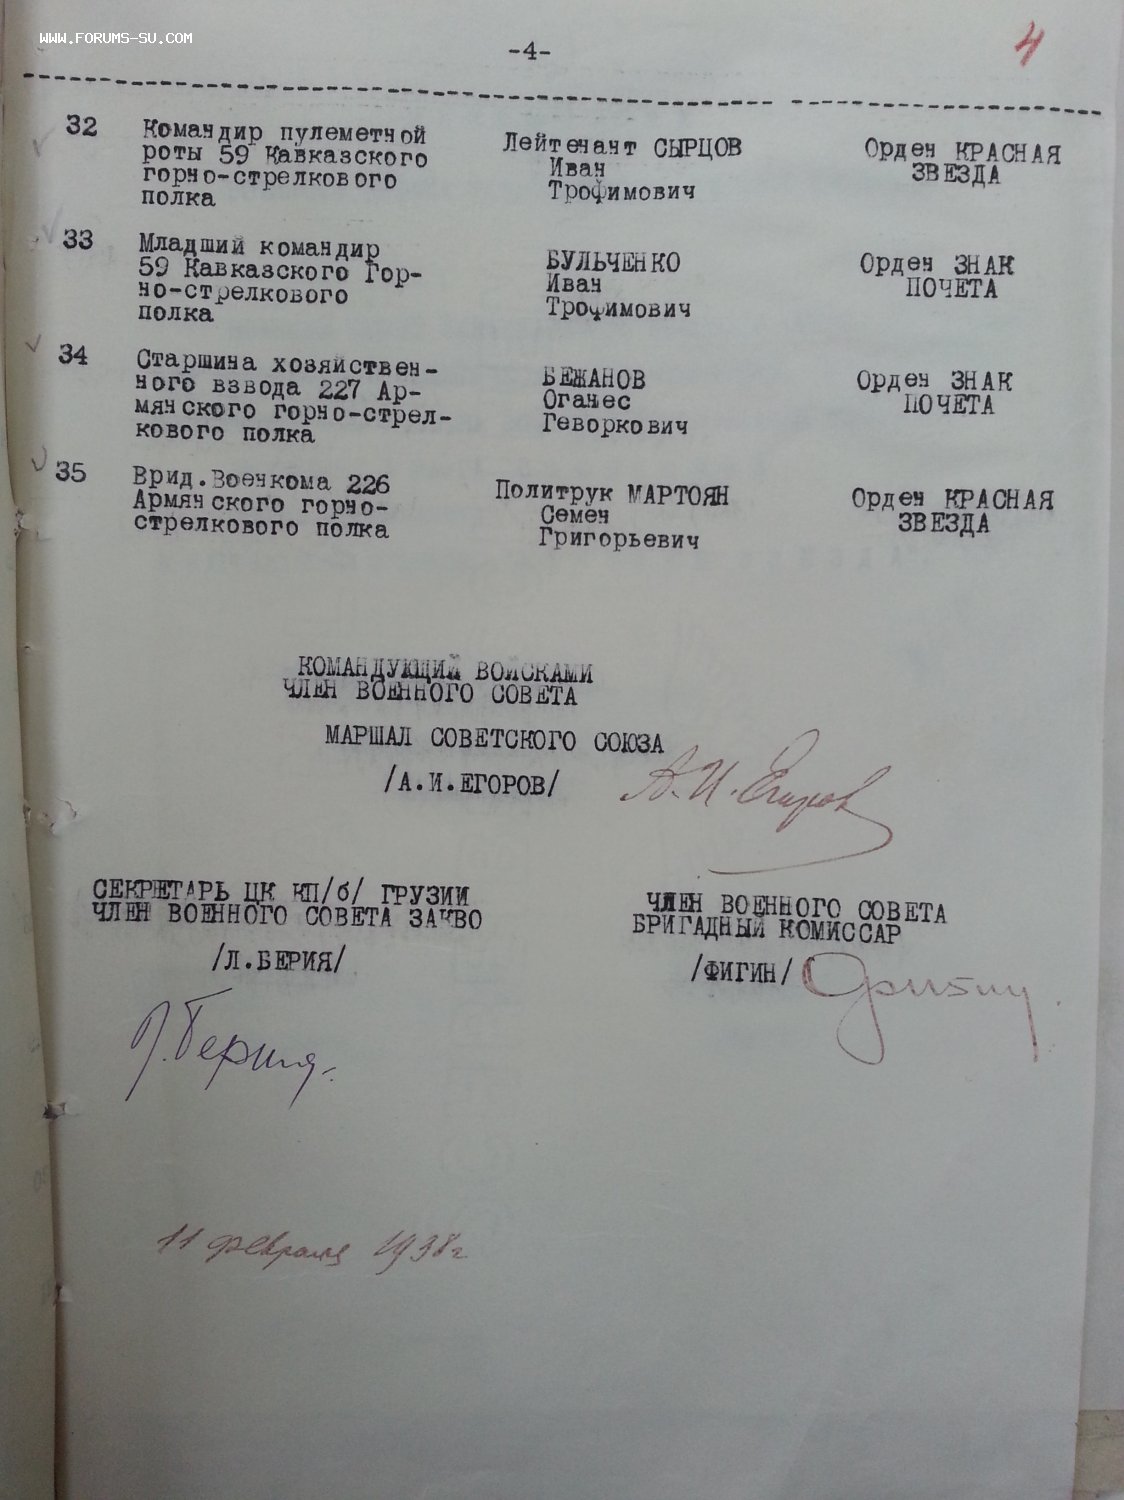 WWW.FORUMS-SU.COM
-4-
4
32 Командир пулеметной Лейтенант СЫРЦОВ Орден КРАСНАЯ
роты 59 Кавказского Иван ЗВЕЗДА
горно-стрелкового Трофимович
полка
33 Младший командир БУЛЬЧЕНКО Орден ЗНАК
59 Кавказского Гор- Иван ПОЧЕТА
но-стрелкового Трофимович
полка
34 Старшина хозяйствен- БЕЖАНОВ Орден ЗНАК
ного взвода 227 Ар- Оганес ПОЧЕТА
мянского горно-стрел- Геворкович
кового полка
35 Врид.Военкома 226 Политрук МАРТОЯН Орден КРАСНАЯ
Армянского горно- Семен ЗВЕЗДА
стрелкового полка Григорьевич
КОМАНДУЮЩИЙ ВОЙСКАМИ
ЧЛЕН ВОЕННОГО СОВЕТА
МАРШАЛ СОВЕТСКОГО СОЮЗА
/А.И.ЕГОРОВ/ А.И.Егоров
СЕКРЕТАРЬ ЦК КП/б/ ГРУЗИИ
ЧЛЕН ВОЕННОГО СОВЕТА ЗАКВО
/Л.БЕРИЯ/
Л.Берия.
ЧЛЕН ВОЕННОГО СОВЕТА
БРИГАДНЫЙ КОМИССАР
/ФИГИН/
11 февраля 1938г